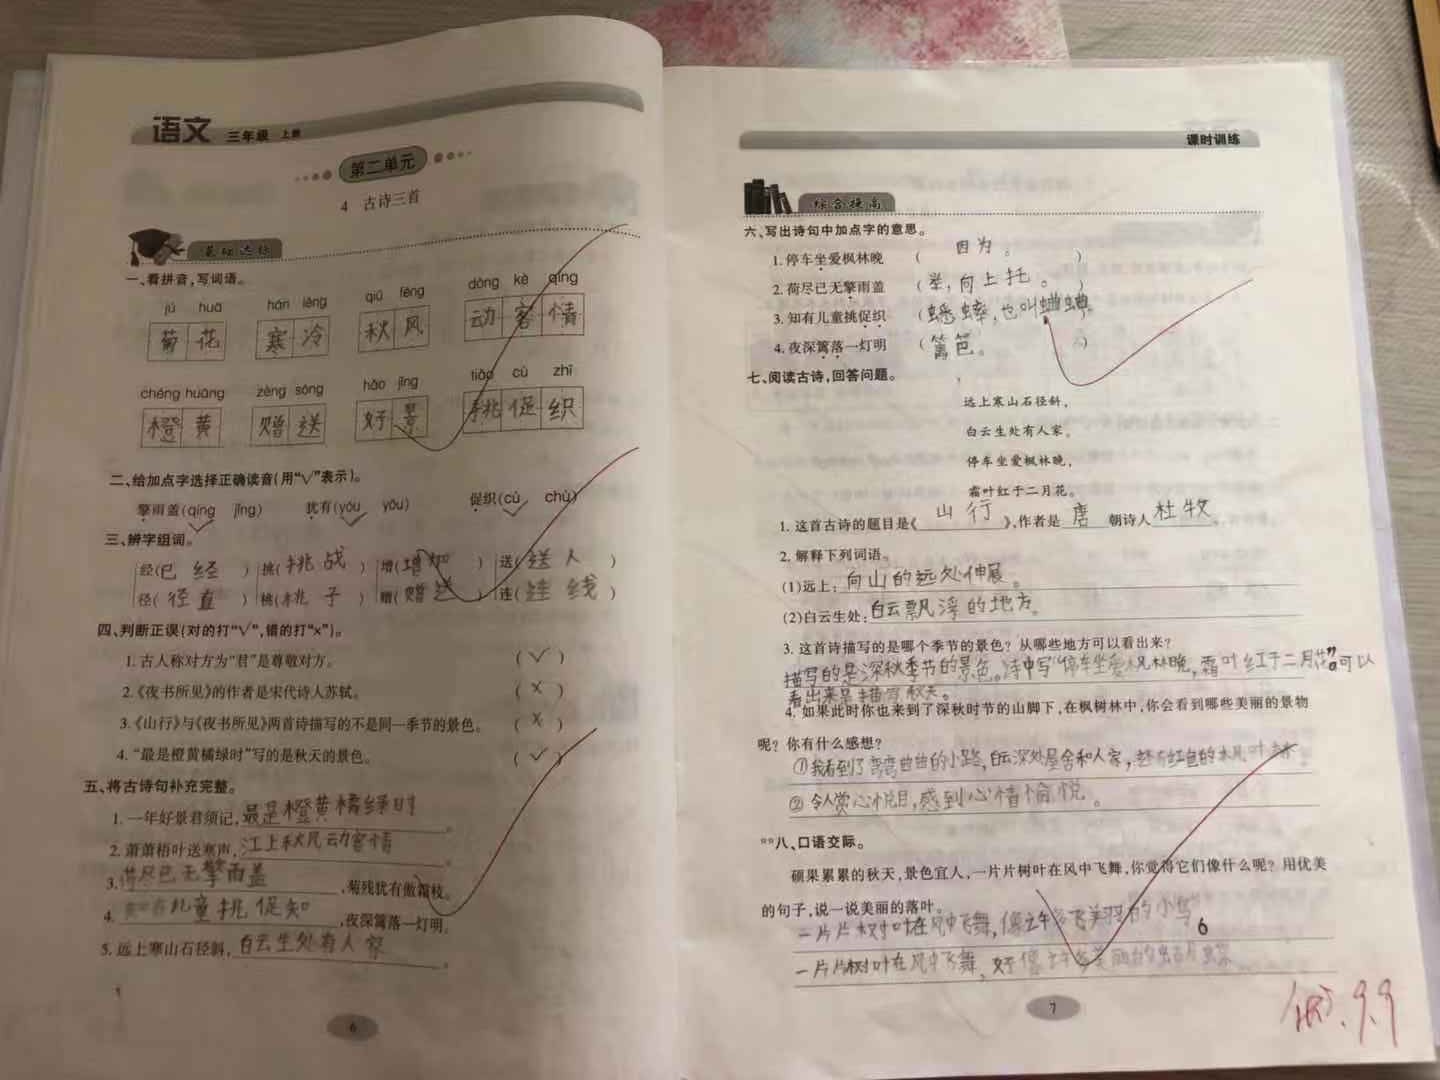 语文 三年级 上册
第二单元
4 古诗三首
基础达标
一、看拼音,写词语。
jú huā hán lěng qiū fēng dòng kè qíng
菊花 寒冷 秋风 动客情
chéng huáng zèng sòng hǎo jǐng tiǎo cù zhī
橙黄 赠送 好景 挑促织
二、给加点字选择正确读音(用“√”表示)。
擎雨盖(qíng√ jǐng) 犹有(yóu√ yōu) 促织(cù√ chù)
三、辨字组词。
经(已经) 挑(挑战) 增(增加) 送(送人)
径(径直) 桃(桃子) 赠(赠送) 连(连线)
四、判断正误(对的打“√”,错的打“×”)。
1.古人称对方为“君”是尊敬对方。 (√)
2.《夜书所见》的作者是宋代诗人苏轼。 (×)
3.《山行》与《夜书所见》两首诗描写的不是同一季节的景色。 (×)
4.“最是橙黄橘绿时”写的是秋天的景色。 (√)
五、将古诗句补充完整。
1.一年好景君须记,最是橙黄橘绿时。
2.萧萧梧叶送寒声,江上秋风动客情。
3.荷尽已无擎雨盖,菊残犹有傲霜枝。
4.知有儿童挑促知,夜深篱落一灯明。
5.远上寒山石径斜,白云生处有人家。
6
课时训练
综合提高
六、写出诗句中加点字的意思。
1.停车坐爱枫林晚 (因为。)
2.荷尽已无擎雨盖 (举,向上托。)
3.知有儿童挑促织 (蟋蟀,也叫蛐蛐。)
4.夜深篱落一灯明 (篱笆。)
七、阅读古诗,回答问题。
远上寒山石径斜,
白云生处有人家。
停车坐爱枫林晚,
霜叶红于二月花。
1.这首古诗的题目是《山行》,作者是唐朝诗人杜牧。
2.解释下列词语。
(1)远上:向山的远处伸展。
(2)白云生处:白云飘浮的地方。
3.这首诗描写的是哪个季节的景色?从哪些地方可以看出来?
描写的是深秋季节的景色。诗中写“停车坐爱枫林晚,霜叶红于二月花”。可以
看出来是描写秋天。
4.如果此时你也来到了深秋时节的山脚下,在枫树林中,你会看到哪些美丽的景物
呢?你有什么感想?
①我看到了弯弯曲曲的小路,白云深处屋舍和人家,还有红色的枫叶
②令人赏心悦目,感到心情愉悦。
**八、口语交际。
硕果累累的秋天,景色宜人,一片片树叶在风中飞舞,你觉得它们像什么呢?用优美
的句子,说一说美丽的落叶。
一片片树叶在风中飞舞,像 的小鸟
6
一片片树叶在风中飞舞,好像 美丽的
7
9.9